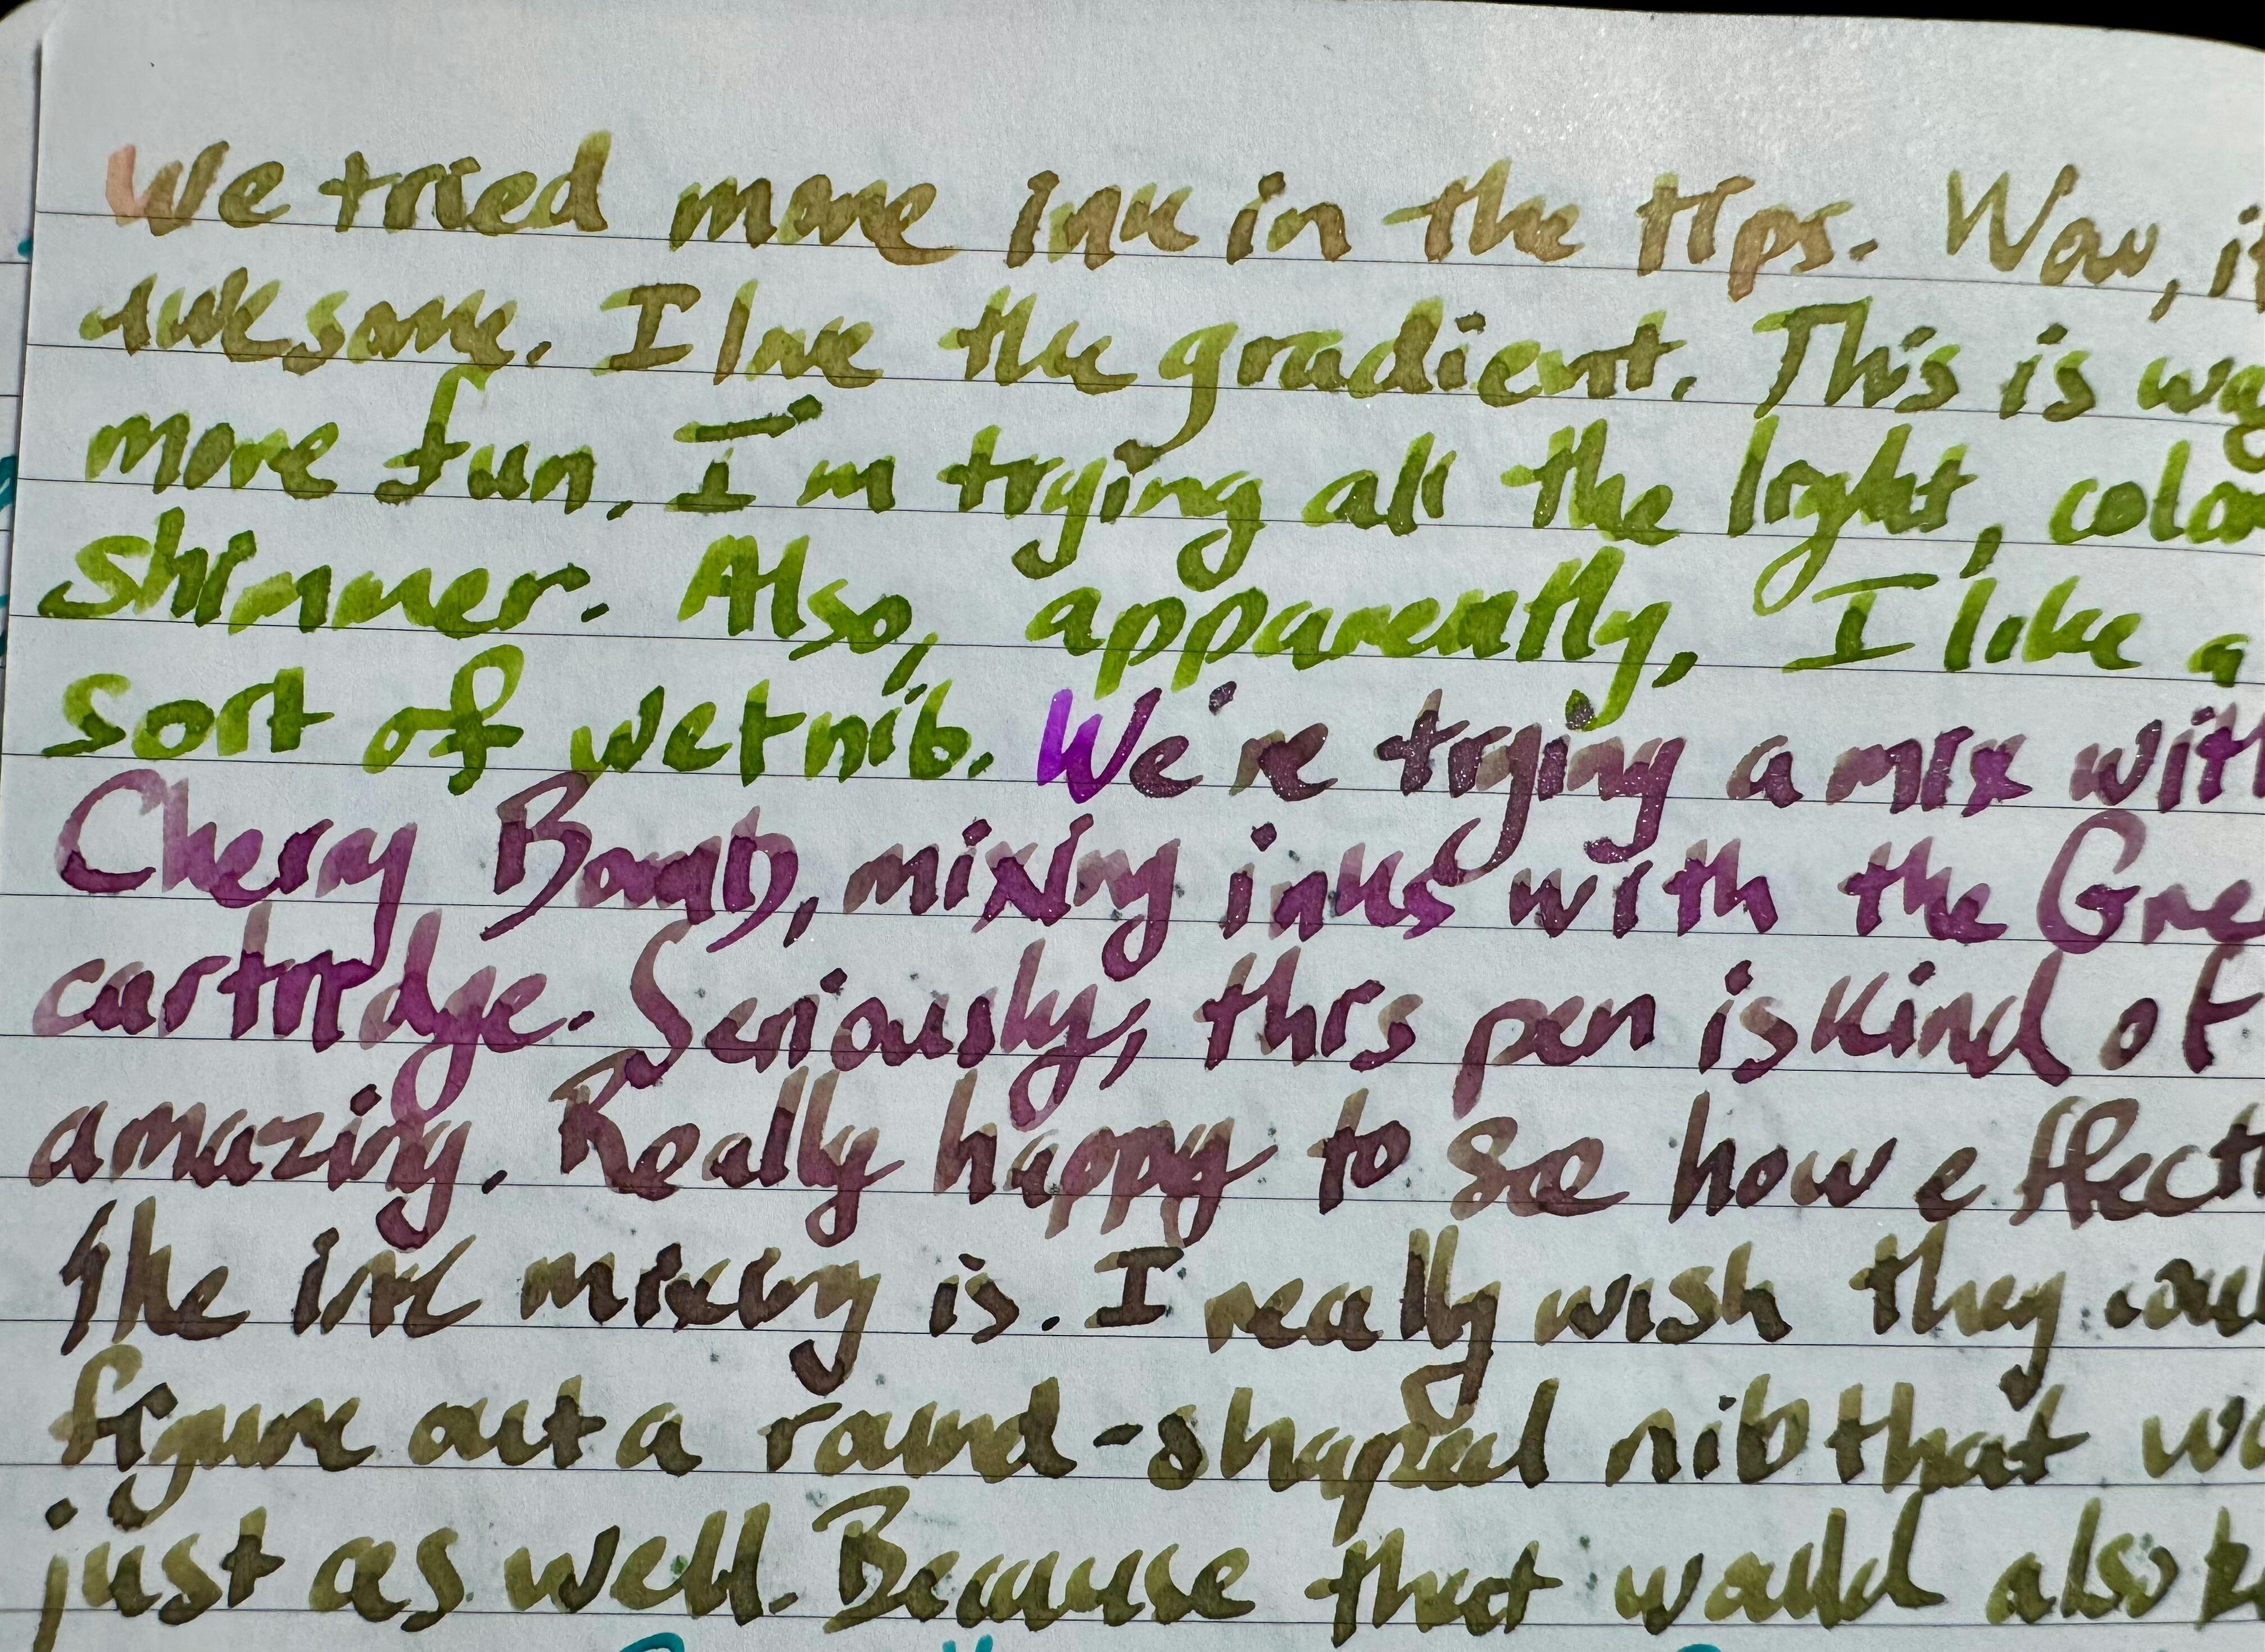 We tried more ink in the tips. Wow, it
awesome. I love the gradient. This is wa
more fun. I'm trying all the light, colo
shimmer. Also, apparently, I like a
sort of wet nib. We're trying a mix with
Cherry Bomb, mixing inks with the Gre
cartridge. Seriously, this pen is kind of
amazing. Really happy to see how effecti
the ink mixing is. I really wish they coul
figure out a round-shaped nib that wo
just as well. Because that would also